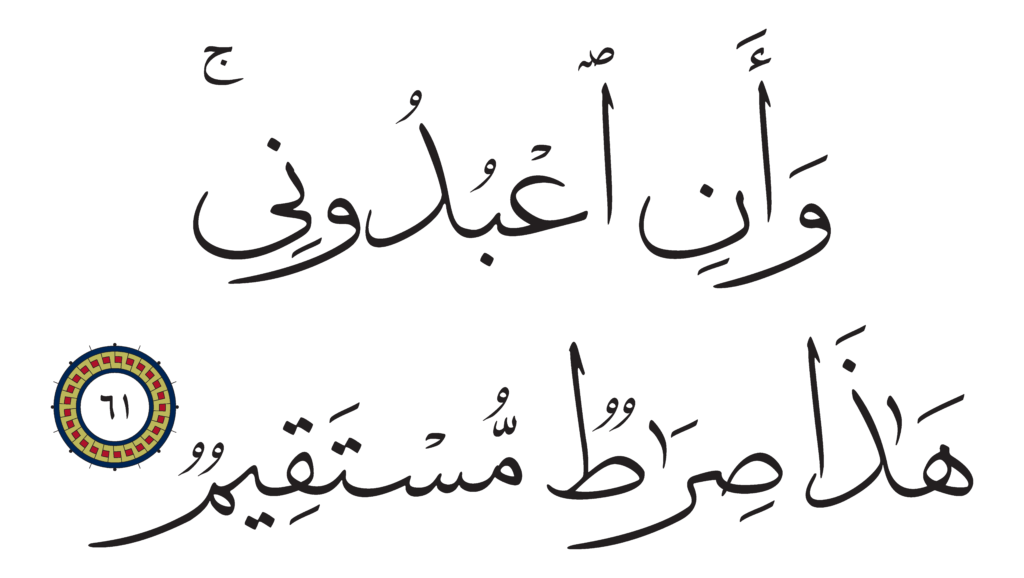 وَأَنِ ٱعْبُدُونِىۚ
هَـٰذَا صِرَٰطٌ مُّسْتَقِيمٌ ٦١